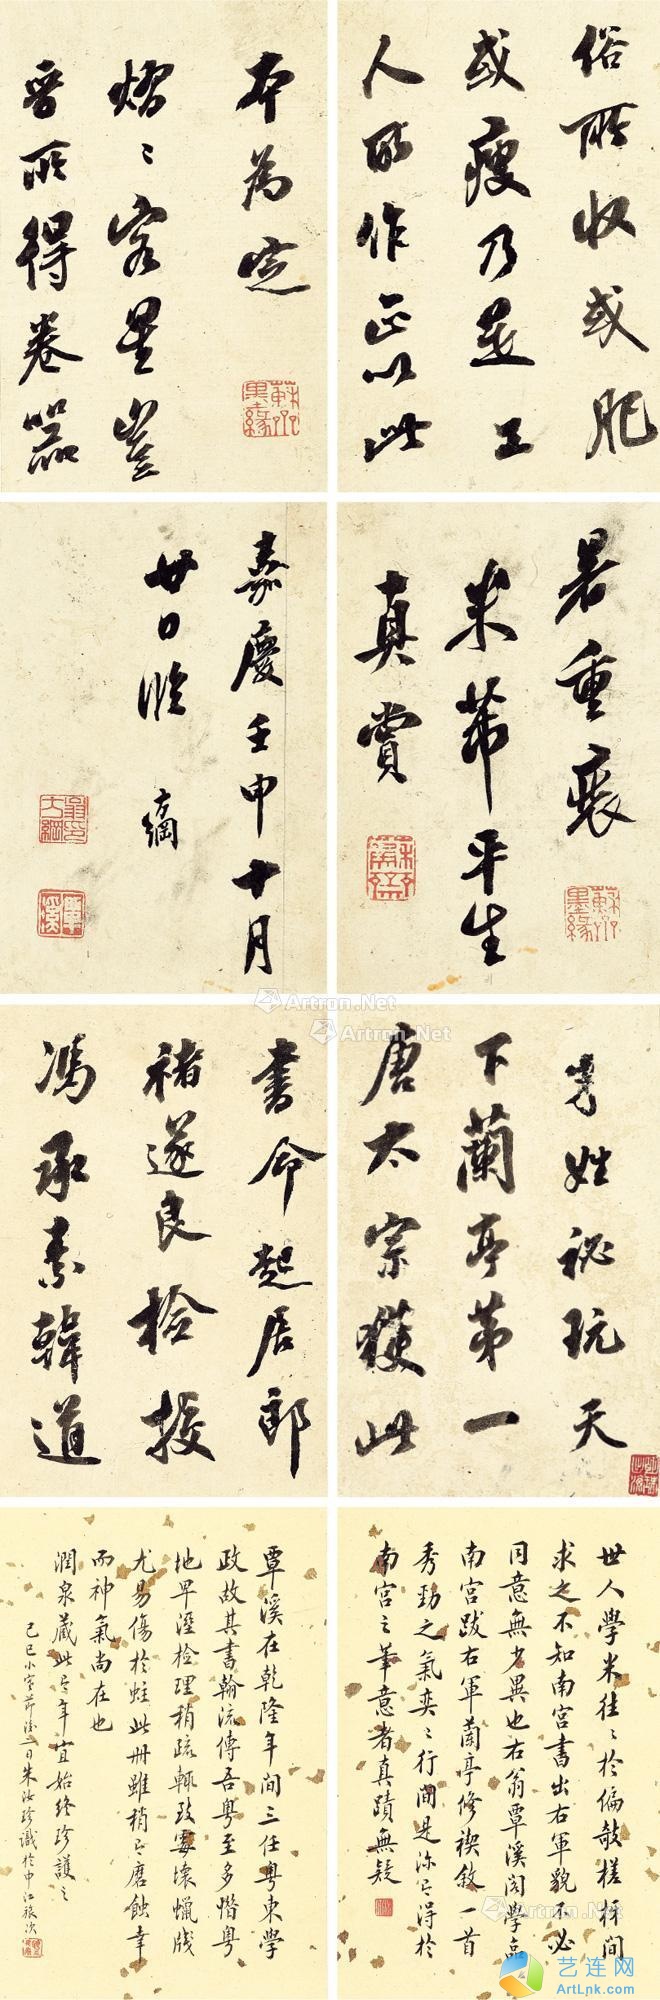 俗所收或肥
或瘦乃是工
人所作正以此
本為定
熠〻客星豈
晉所得養器
暑重裝
米芾平生
真賞
嘉慶壬申十月
廿日臨 綱
米姓祕玩天
下蘭亭第一
唐太宗獲此
書命起居郎
褚遂良檢校
馮承素韓道
世人學米往〻於偏欹槎枒間
求之不知南宮書出右軍貌不必
同意無少異也右翁覃溪閣學臨
南宮跋右軍蘭亭修禊敘一首
秀勁之氣奕〻行間是深于得於
南宮之筆意者真蹟無疑
覃溪在乾隆年間三任粤東學
政故其書翰流傳吾粤至多惜粤
地卑溼檢理稍疏輒致霉壞蠟牋
尤易傷於蛀此冊雖稍〻磨蝕幸
而神氣尚在也
潤泉藏此年宜始終珍護之
己巳小寒節後二日朱汝珍識於申江旅次
蘇齋墨緣
Artron.Net
Artron.Net
艺连网
ArtLnk.com